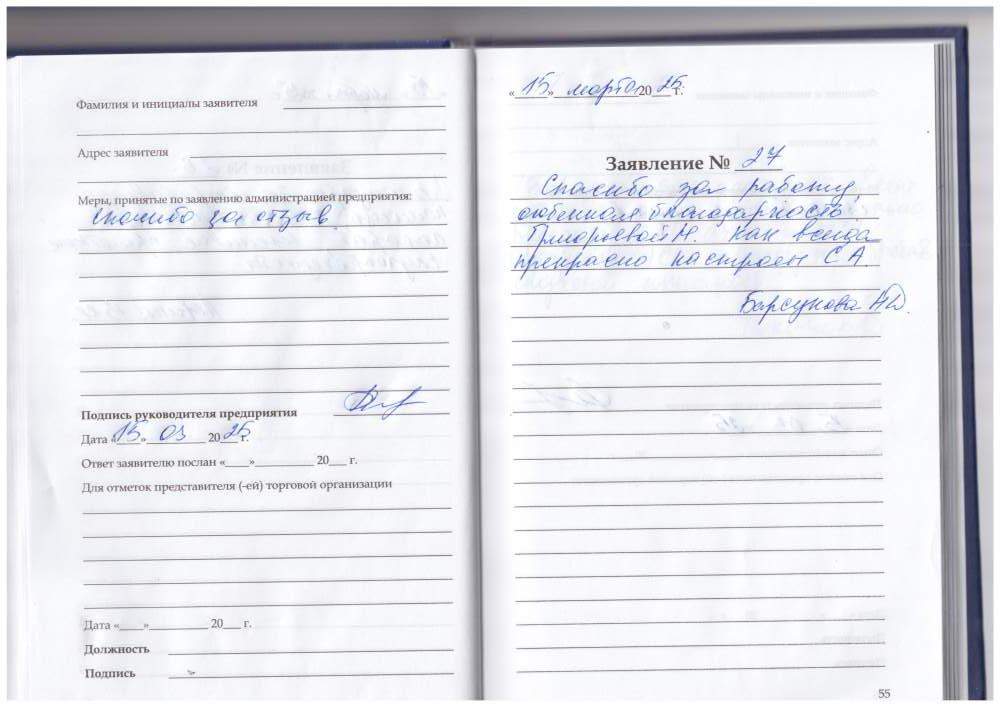 Фамилия и инициалы заявителя
Адрес заявителя
Меры, принятые по заявлению администрацией предприятия:
Спасибо за отзыв.
Подпись руководителя предприятия
Дата «15» 03 2025 г.
Ответ заявителю послан «___»__________ 20___ г.
Для отметок представителя (-ей) торговой организации
Дата «___»__________ 20___ г.
Должность
Подпись
«15» марта 2025 г.
Заявление № 27
Спасибо за работу,
особенная благодарность
М. Как всегда
прекрасно настроен С.А.
Барсукова
55